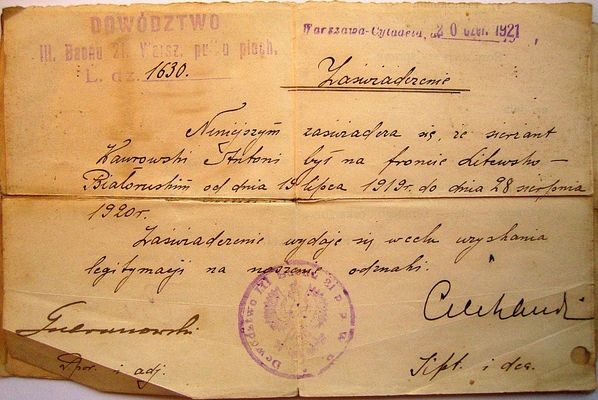 DOWÓDZTWO
III. Baonu 21. Warsz. pułku piech.
L. dz. 1630.
Warszawa-Cytadela, 20 czer. 1921
Zaświadczenie
Niniejszym zaświadcza się, że sierżant
Antoni był na froncie Litewsko-
Białoruskim od dnia 19 lipca 1919r. do dnia 28 sierpnia
1920r.
Zaświadczenie wydaje się w celu uzyskania
legitymacji na noszenie odznaki.
Dowództwo III
i adj.
i dca.